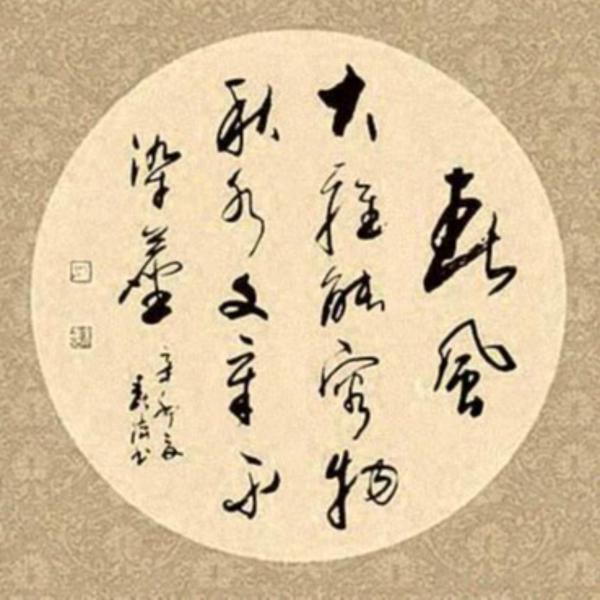 春風
大雅能容物
秋水文章不
染塵
辛卯